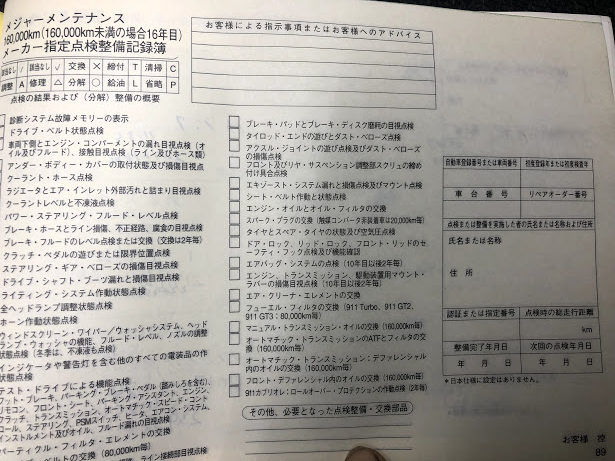 メジャーメンテナンス
160,000km(160,000km未満の場合16年目)
メーカー指定点検整備記録簿
該当なし / 該当なし √ 交換 × 締付 T 清掃 C
調整 A 修理 △ 分解 ○ 給油 L 省略 P
点検の結果および(分解)整備の概要
診断システム故障メモリーの表示
ドライブ・ベルト状態点検
車両下側とエンジン・コンパーメントの漏れ目視点検(オ
イル及びフルード)、接触目視点検(ライン及びホース類)
アンダー・ボディー・カバーの取付状態及び損傷目視点検
クーラント・ホース点検
ラジエータとエア・インレット外部汚れと詰まり目視点検
クーラントレベルと不凍液点検
パワー・ステアリング・フルード・レベル点検
ブレーキ・ホースとライン損傷、不正経路、腐食の目視点検
ブレーキ・フルードのレベル点検または交換(交換は2年毎)
クラッチ・ペダルの遊びまたは限界位置点検
ステアリング・ギア・ベローズの損傷目視点検
ドライブ・シャフト・ブーツ漏れと損傷目視点検
ライティング・システム作動状態点検
全ヘッドランプ調整状態点検
ホーン作動状態点検
ウィンドスクリーン・ワイパー/ウォッシャシステム、ヘッド
ランプ・ウォッシャの機能、フルード・レベル、ノズルの調整
状態点検(冬季は、不凍液も点検)
インジケータや警告灯を含む他のすべての電装品の作
動状態点検
テスト・ドライブによる機能点検
フート・ブレーキ、パーキング・ブレーキ・ペダル(踏みしろを含む)、
リモコン、フロント・シート、パーキング・アシスタント、エンジン、
クラッチ、トランスミッション、オートマチック・スピード・コント
ロール、ステアリング、PSMスイッチ、ヒータ、エアコン・システム、
インストルメント及びオイル、フルード漏れの目視点検
パーティクル・フィルタ・エレメントの交換
ベルトの交換(80,000km毎)
ライン接続部目視点検
お客様による指示事項またはお客様へのアドバイス
ブレーキ・パッドとブレーキ・ディスク磨耗の目視点検
タイロッド・エンドの遊びとダスト・ベローズ点検
アクスル・ジョイントの遊び点検及びダスト・ベローズ
の損傷点検
フロント及びリヤ・サスペンション調整部スクリュの締め
付け具合点検
エキゾースト・システム漏れと損傷点検及びマウント点検
シート・ベルト作動と状態点検
エンジン・オイルとオイル・フィルタの交換
スパーク・プラグの交換(触媒コンバータ非装着車は20,000km毎)
タイヤとスペア・タイヤの状態及び空気圧点検
ドア・ロック、リッド・ロック、フロント・リッドのセ
ーフティ・フック点検及び機能確認
エアバッグ・システムの点検(10年目以後2年毎)
エンジン、トランスミッション、駆動装置用マウント・
ラバーの損傷目視点検(10年目以後2年毎)
エア・クリーナ・エレメントの交換
フューエル・フィルタの交換(911 Turbo、911 GT2、
911 GT3:80,000km毎)
マニュアル・トランスミッション・オイルの交換(160,000km毎)
オートマチック・トランスミッションのATFとフィルタの交
換(160,000km毎)
オートマチック・トランスミッション:デファレンシャル
内のオイルの交換(160,000km毎)
フロント・デファレンシャル内のオイルの交換(160,000km毎)
911カブリオレ:ロールオーバー・プロテクションの作動点検(2年毎)
その他、必要となった点検整備・交換部品
自動車登録番号または車両番号 初度登録年または初度検査年
車台番号 リペアオーダー番号
点検または整備を実施した者の氏名または名称および住所
氏名または名称
住所
認証または指定番号 点検時の総走行距離
整備完了年月日 次回の点検年月日
年 月 日 年 月 日
*日本仕様に設定はありません。
お客様 控
89